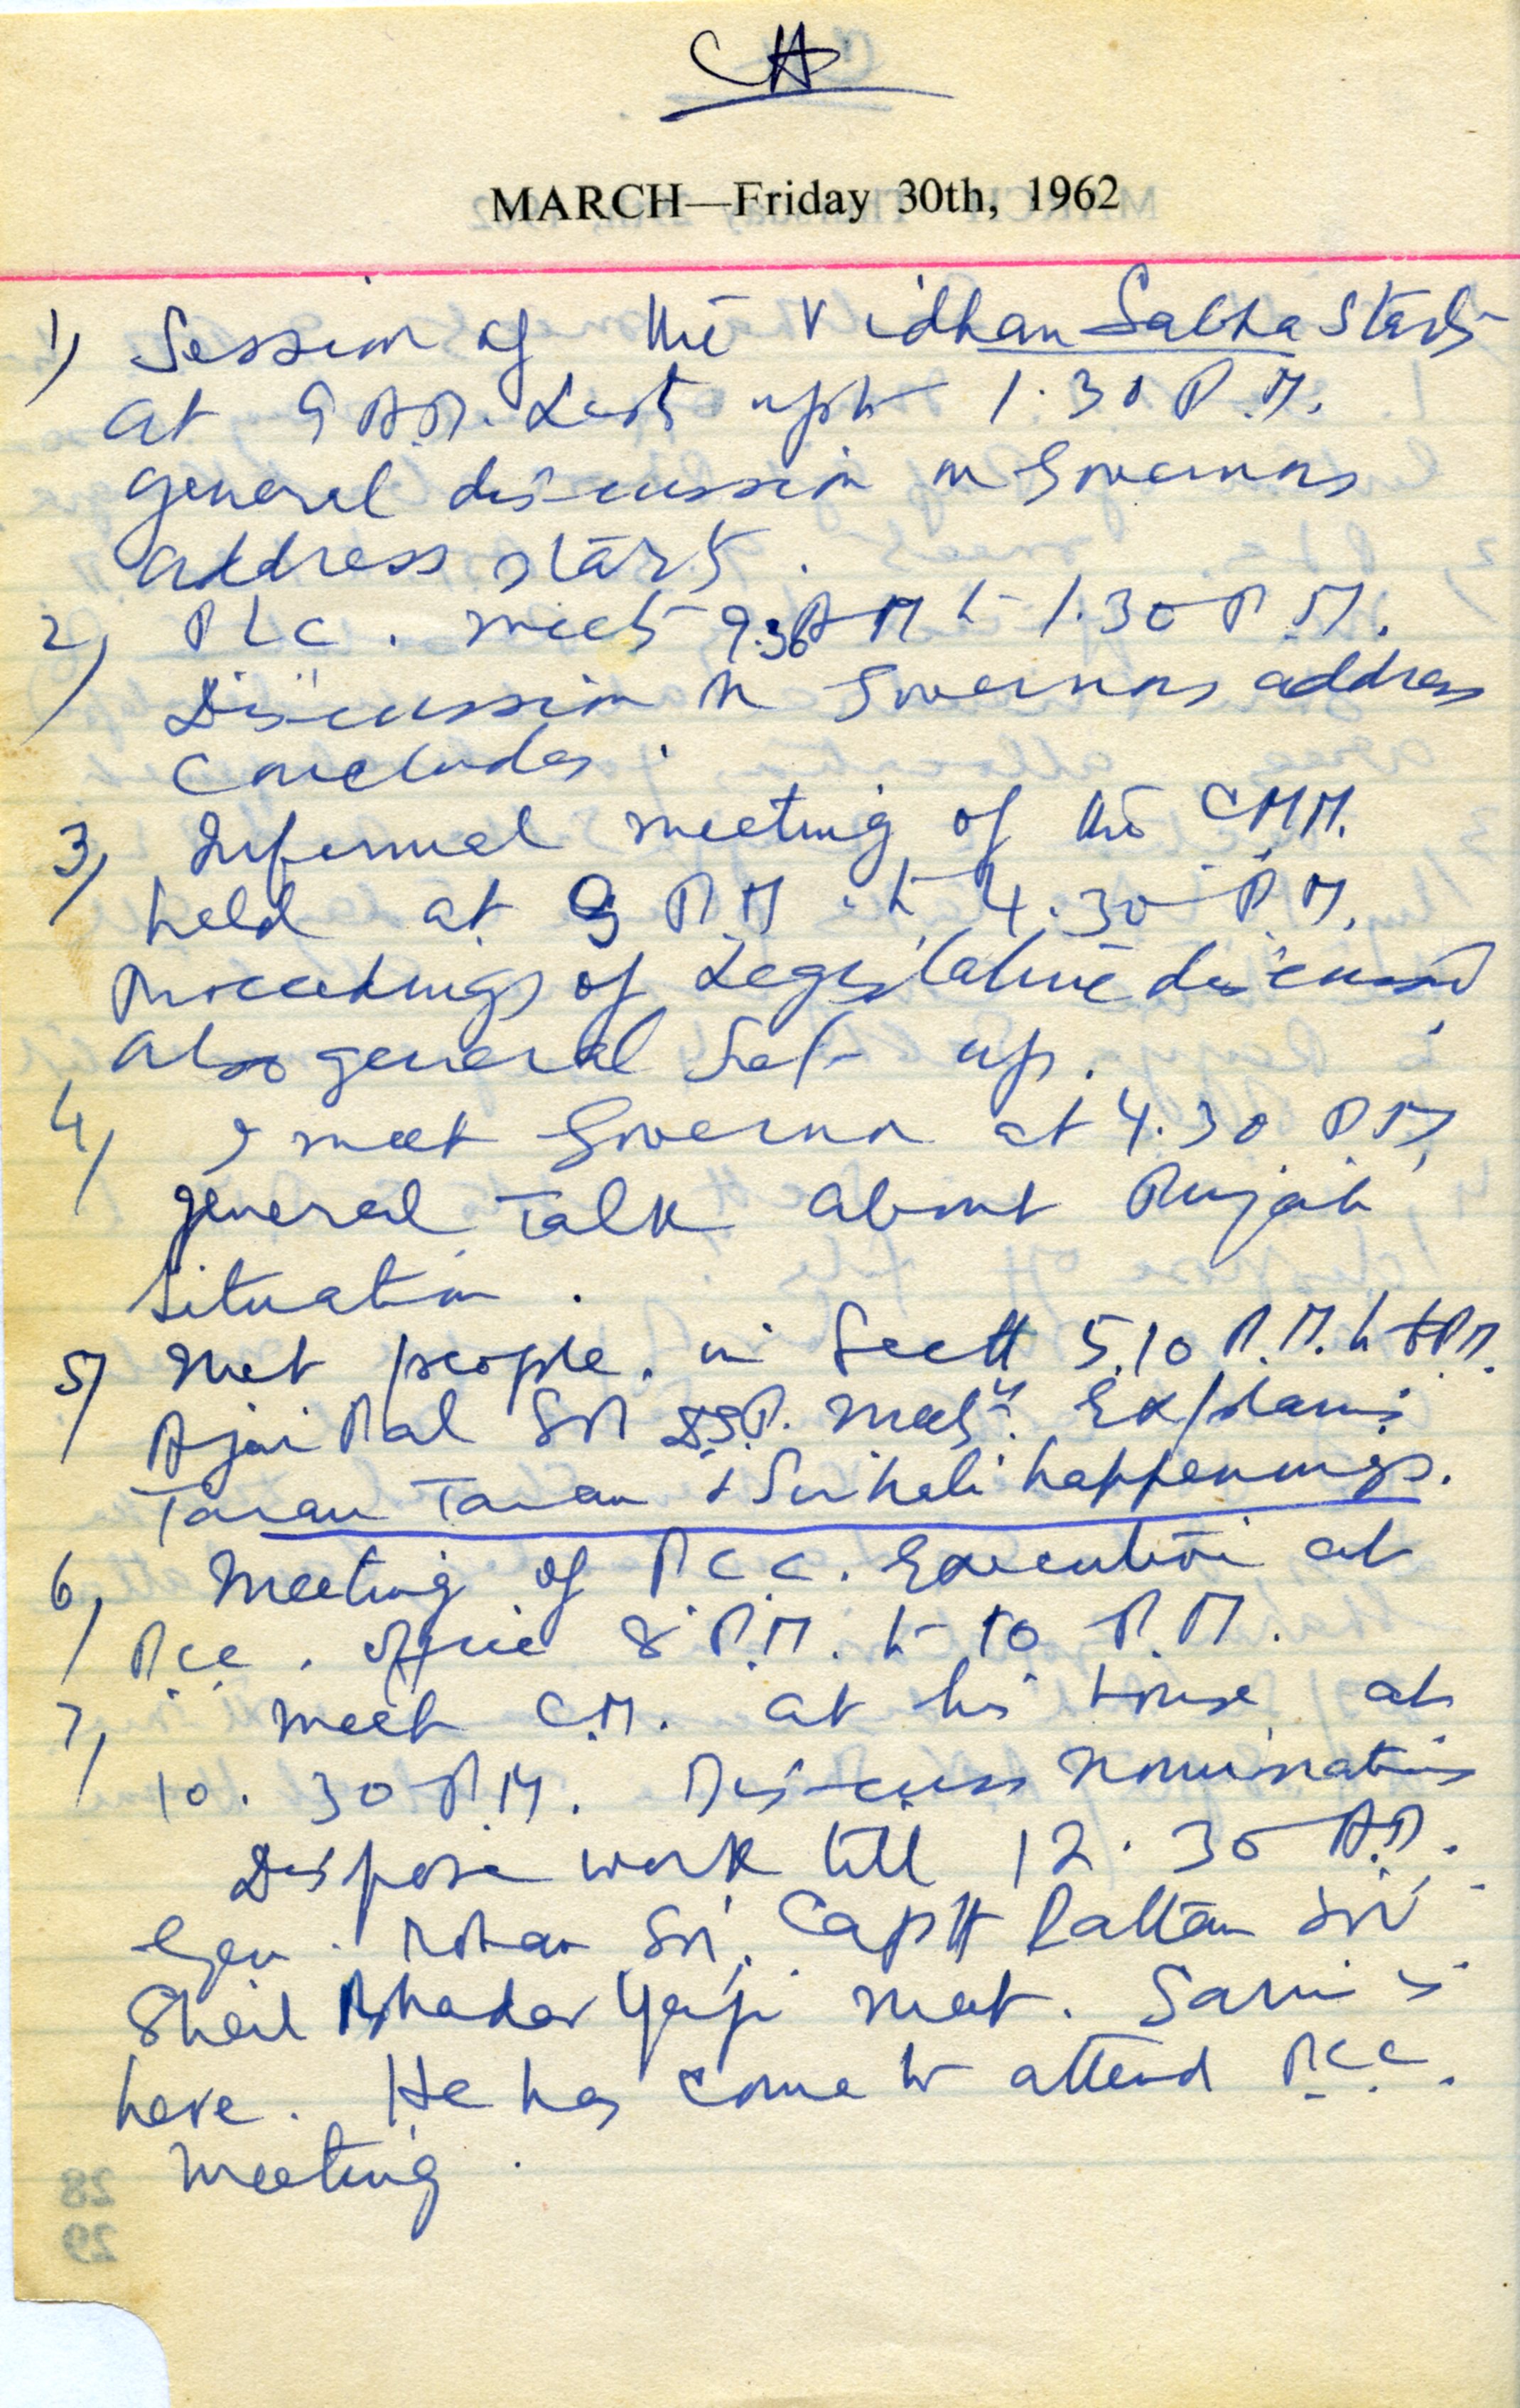 CH
MARCH—Friday 30th, 1962
1) Session of the Vidhan Sabha starts
at 9 A.M. Lasts upto 1.30 P.M.
general discussion on Governors
address starts.
2) P L C. meets 9.30 A M to 1.30 P.M.
Discussion on Governors address
concludes.
3) Informal meeting of the C.M.M.
held at 3 P.M. to 4.30 P.M.
Proceedings of Legislature discussed
also general set up.
4) I meet Governor at 4.30 P.M.
general talk about Punjab
situation.
5) Met people. in Sectt 5.10 P.M. to P.M.
Ajai Pal SN meets. Explains
Taran Taran & happenings.
6) Meeting of P.C.C. Executive at
P.C.C. office 8 P.M. to 10 P.M.
7) Meet C.M. at his house at
10.30 P.M. Discuss nominations
Dispose work till 12.30 A.M.
Gen. Mohan SN. Captt Rattan SN
Sheel Bhadar Yaji meet. is
here. He has come to attend P.C.C.
meeting.
28
29